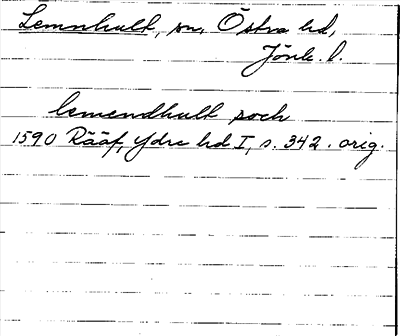 Lemnhult, sn, Östra hd,
Jönk. l.
lemendhult soch
1590 Rääf, Ydre hd I, s. 342. orig.